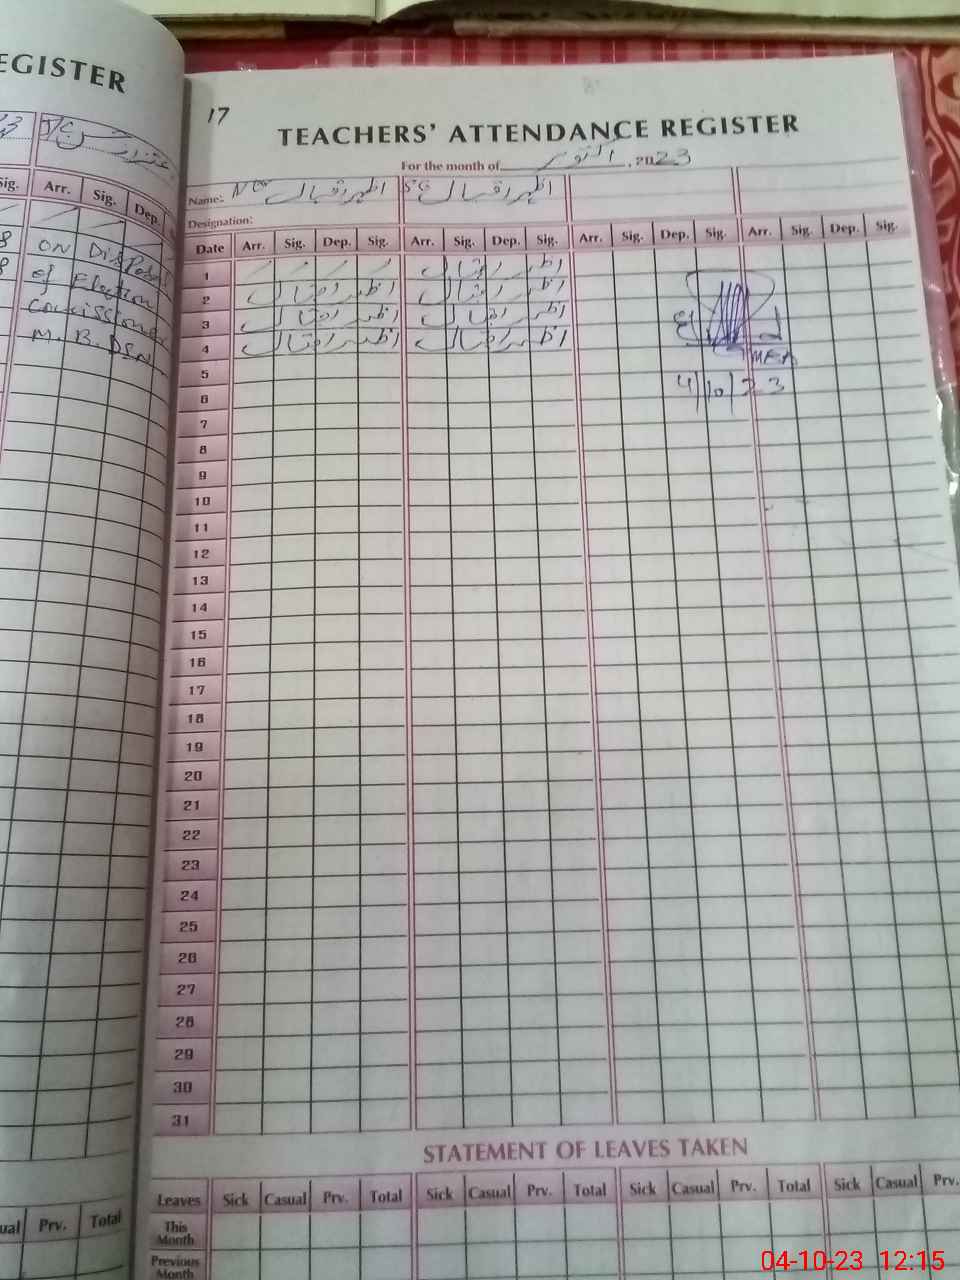 EGISTER
Sig. Arr. Sig. Dep.
ON Disposal
of Election
M. B. DSN
ual Prv. Total
17
TEACHERS' ATTENDANCE REGISTER
For the month of اکتوبر , 2023
Name: اظہر اقبال اظہر اقبال
Designation:
Date Arr. Sig. Dep. Sig. Arr. Sig. Dep. Sig. Arr. Sig. Dep. Sig. Arr. Sig. Dep. Sig.
1 اظہر اقبال
2 اظہر اقبال اظہر اقبال
3 اظہر اقبال اظہر اقبال
4 اظہر اقبال اظہر اقبال
MEA
5
4/10/23
6
7
8
9
10
11
12
13
14
15
16
17
18
19
20
21
22
23
24
25
26
27
28
29
30
31
STATEMENT OF LEAVES TAKEN
Leaves Sick Casual Prv. Total Sick Casual Prv. Total Sick Casual Prv. Total Sick Casual Prv.
This
Month
Previous
Month
04-10-23 12:15